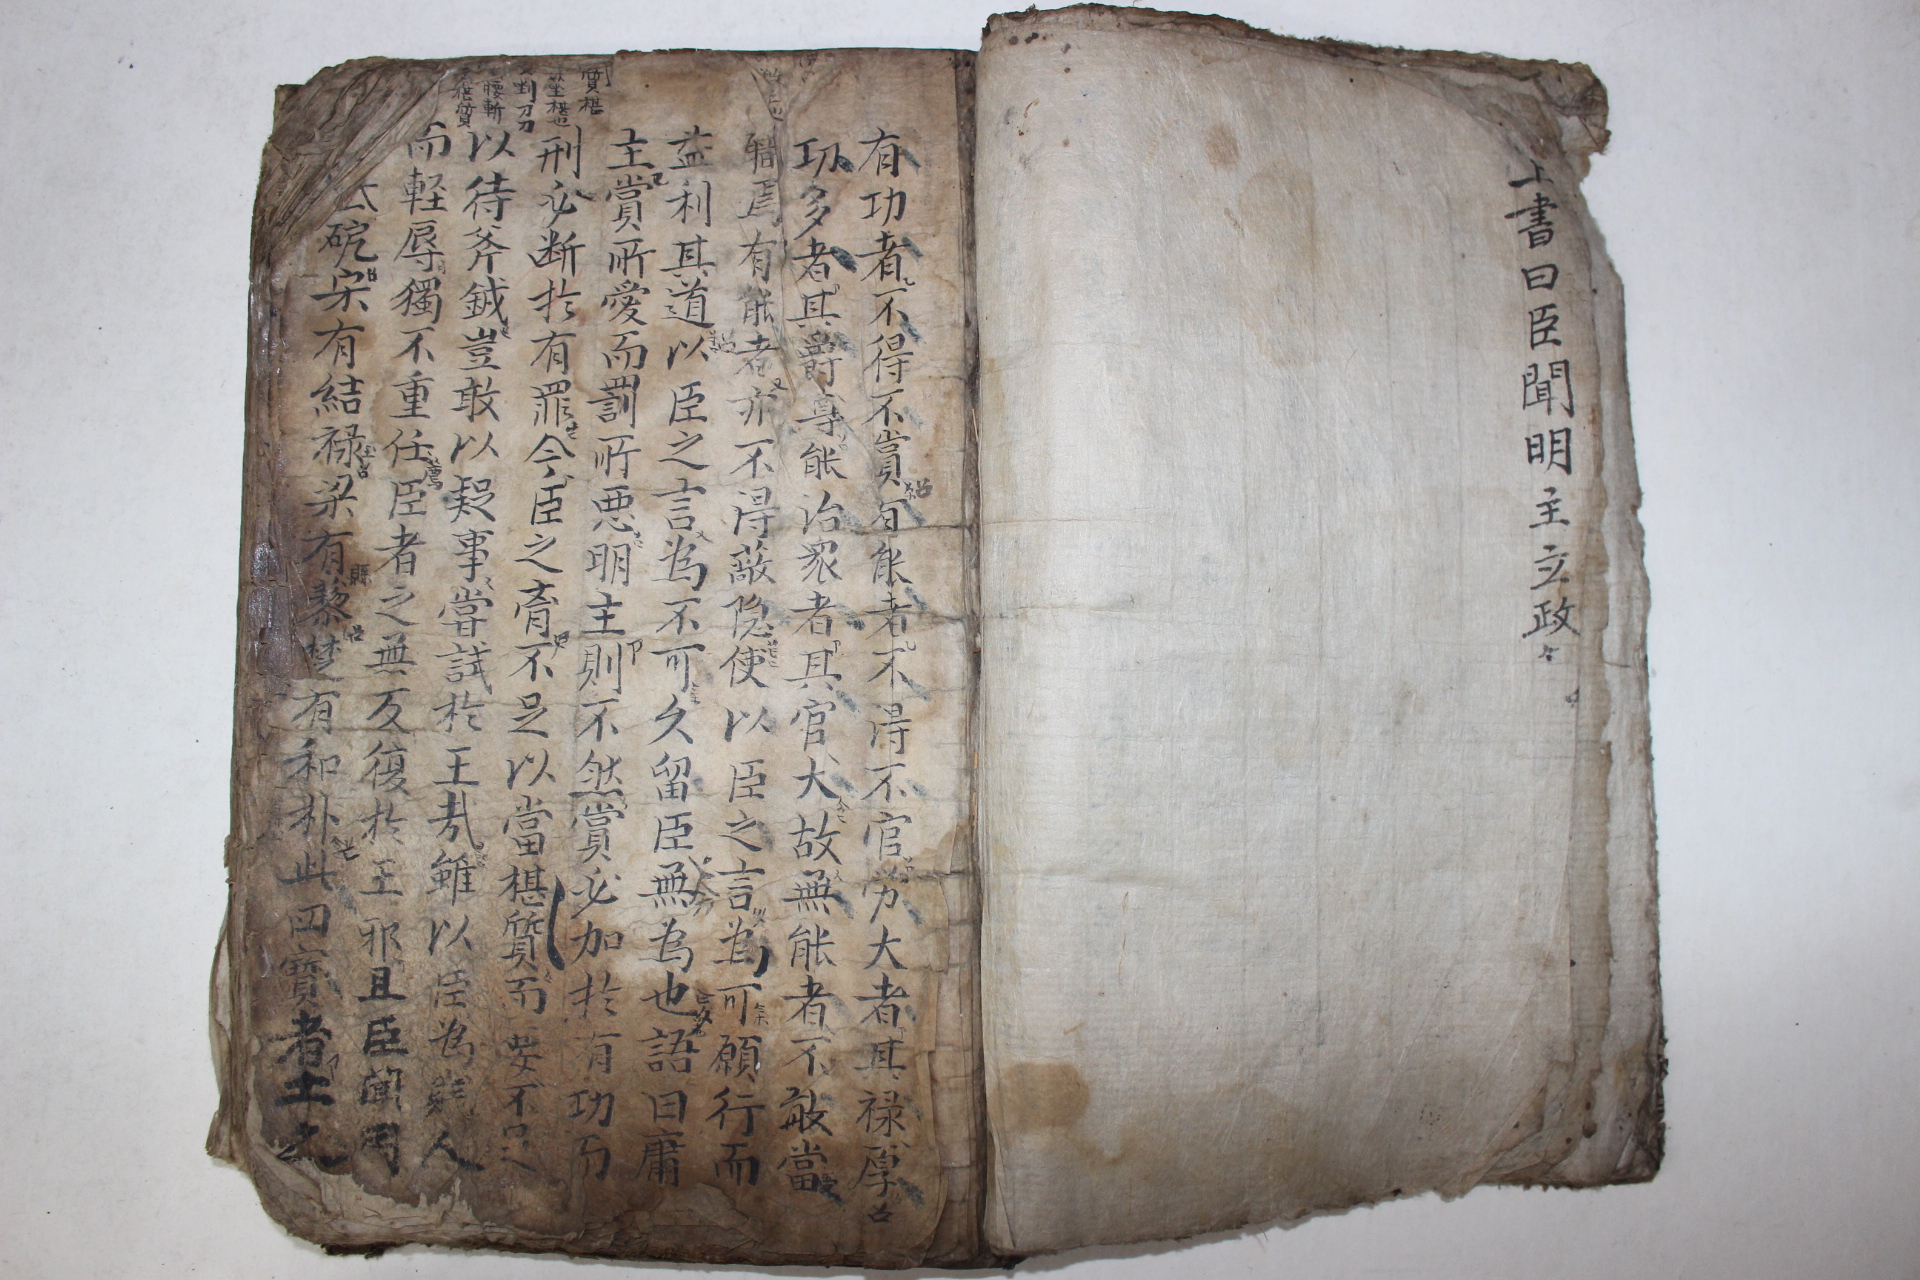 上書曰臣聞明主立政々
有功者不得不賞有能者不得不官労大者其禄厚
功多者其爵尊能治衆者其官大故無能者不敢當
職焉有能者亦不得蔽隐使以臣之言為可願行而
益利其道以臣之言為不可久留臣無為也語曰庸
主賞所愛而罰所悪明主則不然賞必加於有功而
刑必断於有罪今臣之胷不足以當椹質而要不足
以待斧鉞豈敢以疑事嘗試於王哉雖以臣為賤人
而軽辱獨不重任臣者之無反復於王邪且臣聞周
砨宋有結禄梁有縣藜楚有和朴此四寶者土之
質椹